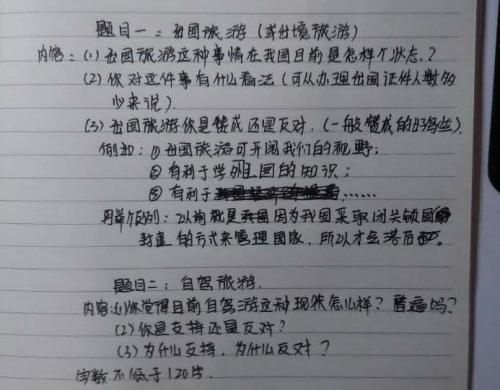 题目一：出国旅游（或出境旅游）
内容：(1) 出国旅游这种事情在我国目前是怎样个状态？
(2) 你对这件事有什么看法（可从办理出国证件人数多
少来说）
(3) 出国旅游你是赞成还是反对．（一般赞成的好写些）
例如：① 出国旅游可开阔我们的视野；
② 有利于学外国的知识；
③ 有利于……
再举个反例：以前就是因为我国采取闭关锁国
封建的方式来管理国家，所以才会落后
题目二：自驾旅游．
内容：(1) 你觉得目前自驾游这种现象怎么样？普遍吗？
(2) 你是支持还是反对？
(3) 为什么支持，为什么反对？
字数不低于120字．